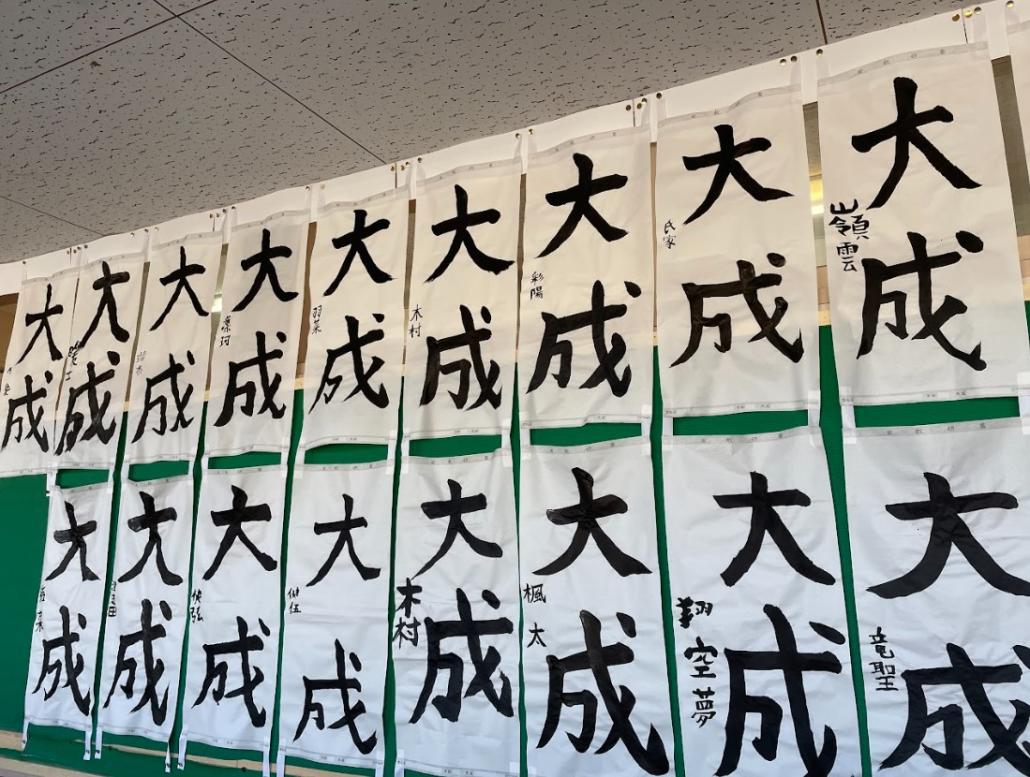 大成
嶺雲
大成
氏家
大成
彩陽
大成
木村
大成
羽菜
大成
大成
大成
大成
大成
竜聖
大成
翔空夢
大成
楓太
大成
木村
大成
大成
大成
大成